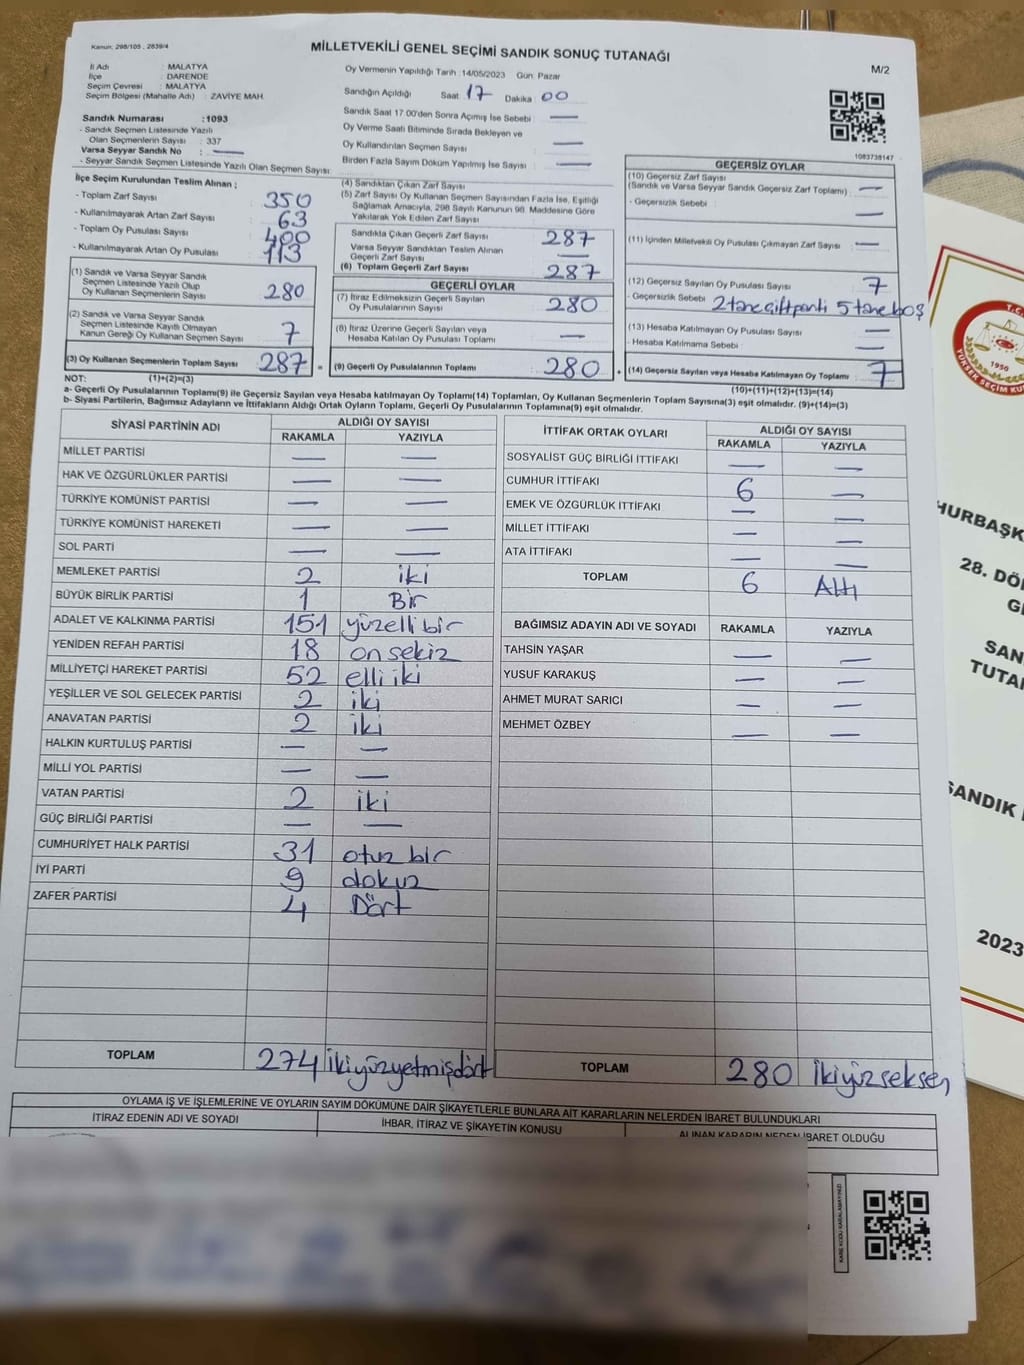 Kanun: 298/105 , 2839/4
MİLLETVEKİLİ GENEL SEÇİMİ SANDIK SONUÇ TUTANAĞI
M/2
İl Adı : MALATYA
İlçe : DARENDE
Seçim Çevresi : MALATYA
Seçim Bölgesi (Mahalle Adı) : ZAVİYE MAH.
Sandık Numarası :1093
- Sandık Seçmen Listesinde Yazılı
Olan Seçmenlerin Sayısı : 337
Varsa Seyyar Sandık No : —
- Seyyar Sandık Seçmen Listesinde Yazılı Olan Seçmen Sayısı:
Oy Vermenin Yapıldığı Tarih :14/05/2023 Gün: Pazar
Sandığın Açıldığı Saat 17 Dakika : 00
Sandık Saat 17.00'den Sonra Açılmış İse Sebebi : —
Oy Verme Saati Bitiminde Sırada Bekleyen ve
Oy Kullandırılan Seçmen Sayısı : —
Birden Fazla Sayım Döküm Yapılmış İse Sayısı : —
1083738147
İlçe Seçim Kurulundan Teslim Alınan ;
- Toplam Zarf Sayısı : 350
- Kullanılmayarak Artan Zarf Sayısı : 63
- Toplam Oy Pusulası Sayısı : 400
- Kullanılmayarak Artan Oy Pusulası : 113
(1) Sandık ve Varsa Seyyar Sandık
Seçmen Listesinde Yazılı Olup
Oy Kullanan Seçmenlerin Sayısı 280
(2) Sandık ve Varsa Seyyar Sandık
Seçmen Listesinde Kayıtlı Olmayan
Kanun Gereği Oy Kullanan Seçmen Sayısı 7
(3) Oy Kullanan Seçmenlerin Toplam Sayısı 287 =
(4) Sandıktan Çıkan Zarf Sayısı
(5) Zarf Sayısı Oy Kullanan Seçmen Sayısından Fazla İse, Eşitliği
Sağlamak Amacıyla, 298 Sayılı Kanunun 98. Maddesine Göre
Yakılarak Yok Edilen Zarf Sayısı
Sandıkta Çıkan Geçerli Zarf Sayısı 287
Varsa Seyyar Sandıktan Teslim Alınan
Geçerli Zarf Sayısı —
(6) Toplam Geçerli Zarf Sayısı 287
GEÇERLİ OYLAR
(7) İtiraz Edilmeksizin Geçerli Sayılan
Oy Pusulalarının Sayısı 280
(8) İtiraz Üzerine Geçerli Sayılan veya
Hesaba Katılan Oy Pusulası Toplamı —
(9) Geçerli Oy Pusulalarının Toplamı 280 +
GEÇERSİZ OYLAR
(10) Geçersiz Zarf Sayısı
(Sandık ve Varsa Seyyar Sandık Geçersiz Zarf Toplamı) : —
- Geçersizlik Sebebi : —
(11) İçinden Milletvekili Oy Pusulası Çıkmayan Zarf Sayısı : —
(12) Geçersiz Sayılan Oy Pusulası Sayısı : 7
- Geçersizlik Sebebi : 2 tane çift parti 5 tane boş
(13) Hesaba Katılmayan Oy Pusulası Sayısı : —
- Hesaba Katılmama Sebebi : —
(14) Geçersiz Sayılan veya Hesaba Katılmayan Oy Toplamı : 7
NOT: (1)+(2)=(3) (10)+(11)+(12)+(13)=(14)
a- Geçerli Oy Pusulalarının Toplamı(9) ile Geçersiz Sayılan veya Hesaba katılmayan Oy Toplamı(14) Toplamları, Oy Kullanan Seçmenlerin Toplam Sayısına(3) eşit olmalıdır. (9)+(14)=(3)
b- Siyasi Partilerin, Bağımsız Adayların ve İttifakların Aldığı Ortak Oyların Toplamı, Geçerli Oy Pusulalarının Toplamına(9) eşit olmalıdır.
SİYASİ PARTİNİN ADI ALDIĞI OY SAYISI
RAKAMLA YAZIYLA
MİLLET PARTİSİ — —
HAK VE ÖZGÜRLÜKLER PARTİSİ — —
TÜRKİYE KOMÜNİST PARTİSİ — —
TÜRKİYE KOMÜNİST HAREKETİ — —
SOL PARTİ — —
MEMLEKET PARTİSİ 2 iki
BÜYÜK BİRLİK PARTİSİ 1 Bir
ADALET VE KALKINMA PARTİSİ 151 yüzelli bir
YENİDEN REFAH PARTİSİ 18 on sekiz
MİLLİYETÇİ HAREKET PARTİSİ 52 elli iki
YEŞİLLER VE SOL GELECEK PARTİSİ 2 iki
ANAVATAN PARTİSİ 2 iki
HALKIN KURTULUŞ PARTİSİ — —
MİLLİ YOL PARTİSİ — —
VATAN PARTİSİ 2 iki
GÜÇ BİRLİĞİ PARTİSİ — —
CUMHURİYET HALK PARTİSİ 31 otuz bir
İYİ PARTİ 9 dokuz
ZAFER PARTİSİ 4 Dört
TOPLAM 274 ikiyüzyetmişdört
İTTİFAK ORTAK OYLARI ALDIĞI OY SAYISI
RAKAMLA YAZIYLA
SOSYALİST GÜÇ BİRLİĞİ İTTİFAKI — —
CUMHUR İTTİFAKI 6 —
EMEK VE ÖZGÜRLÜK İTTİFAKI — —
MİLLET İTTİFAKI — —
ATA İTTİFAKI — —
TOPLAM 6 Altı
BAĞIMSIZ ADAYIN ADI VE SOYADI RAKAMLA YAZIYLA
TAHSİN YAŞAR — —
YUSUF KARAKUŞ — —
AHMET MURAT SARICI — —
MEHMET ÖZBEY — —
TOPLAM 280 ikiyüzseksen
OYLAMA İŞ VE İŞLEMLERİNE VE OYLARIN SAYIM DÖKÜMÜNE DAİR ŞİKAYETLERLE BUNLARA AİT KARARLARIN NELERDEN İBARET BULUNDUKLARI
İTİRAZ EDENİN ADI VE SOYADI İHBAR, İTİRAZ VE ŞİKAYETİN KONUSU ALINAN KARARIN NEDEN İBARET OLDUĞU
KARE KODU KARALAMAYINIZ!
T.C.
YÜKSEK SEÇİM KU
1950
HURBAŞK
28. DÖ
SAN
TUTA
SANDIK
2023